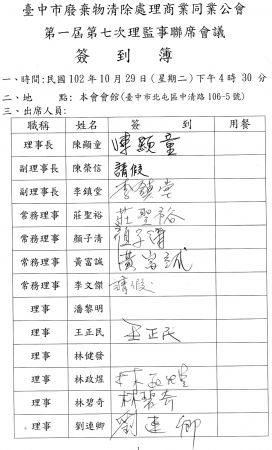 臺中市廢棄物清除處理商業同業公會
第一屆第七次理監事聯席會議
簽到簿
一、時間:民國102年10月29日(星期二)下午4時30分
二、地　點:本會會館(臺中市北屯區中清路106-5號)
三、出席人員:
職稱 姓名 簽到 用餐
理事長 陳顯童 陳顯童
副理事長 陳榮信 請假
副理事長 李鎮堂 李鎮堂
常務理事 莊聖裕 莊聖裕
常務理事 顏子清 顏子清
常務理事 黃富誠 黃富誠
常務理事 李文傑 請假
理事 潘黎明
理事 王正民 王正民
理事 林健發
理事 林政煜 林政煜
理事 林碧奇 林碧奇
理事 劉連卿 劉連卿
1